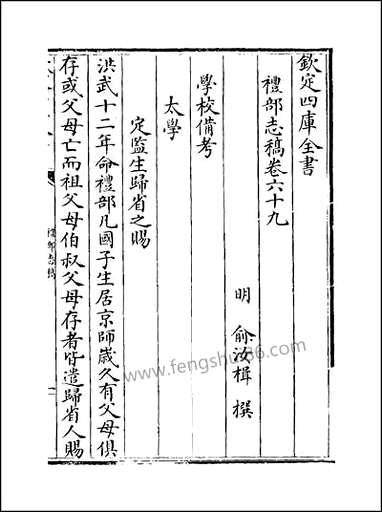 欽定四庫全書
禮部志稿卷六十九
明 俞汝楫 撰
學校備考
太學
定監生歸省之賜
洪武十二年命禮部凡國子生居京師歲久有父母俱
存或父母亡而祖父母伯叔父母存者皆遣歸省人賜
禮部志稿
www.fengshu86.com